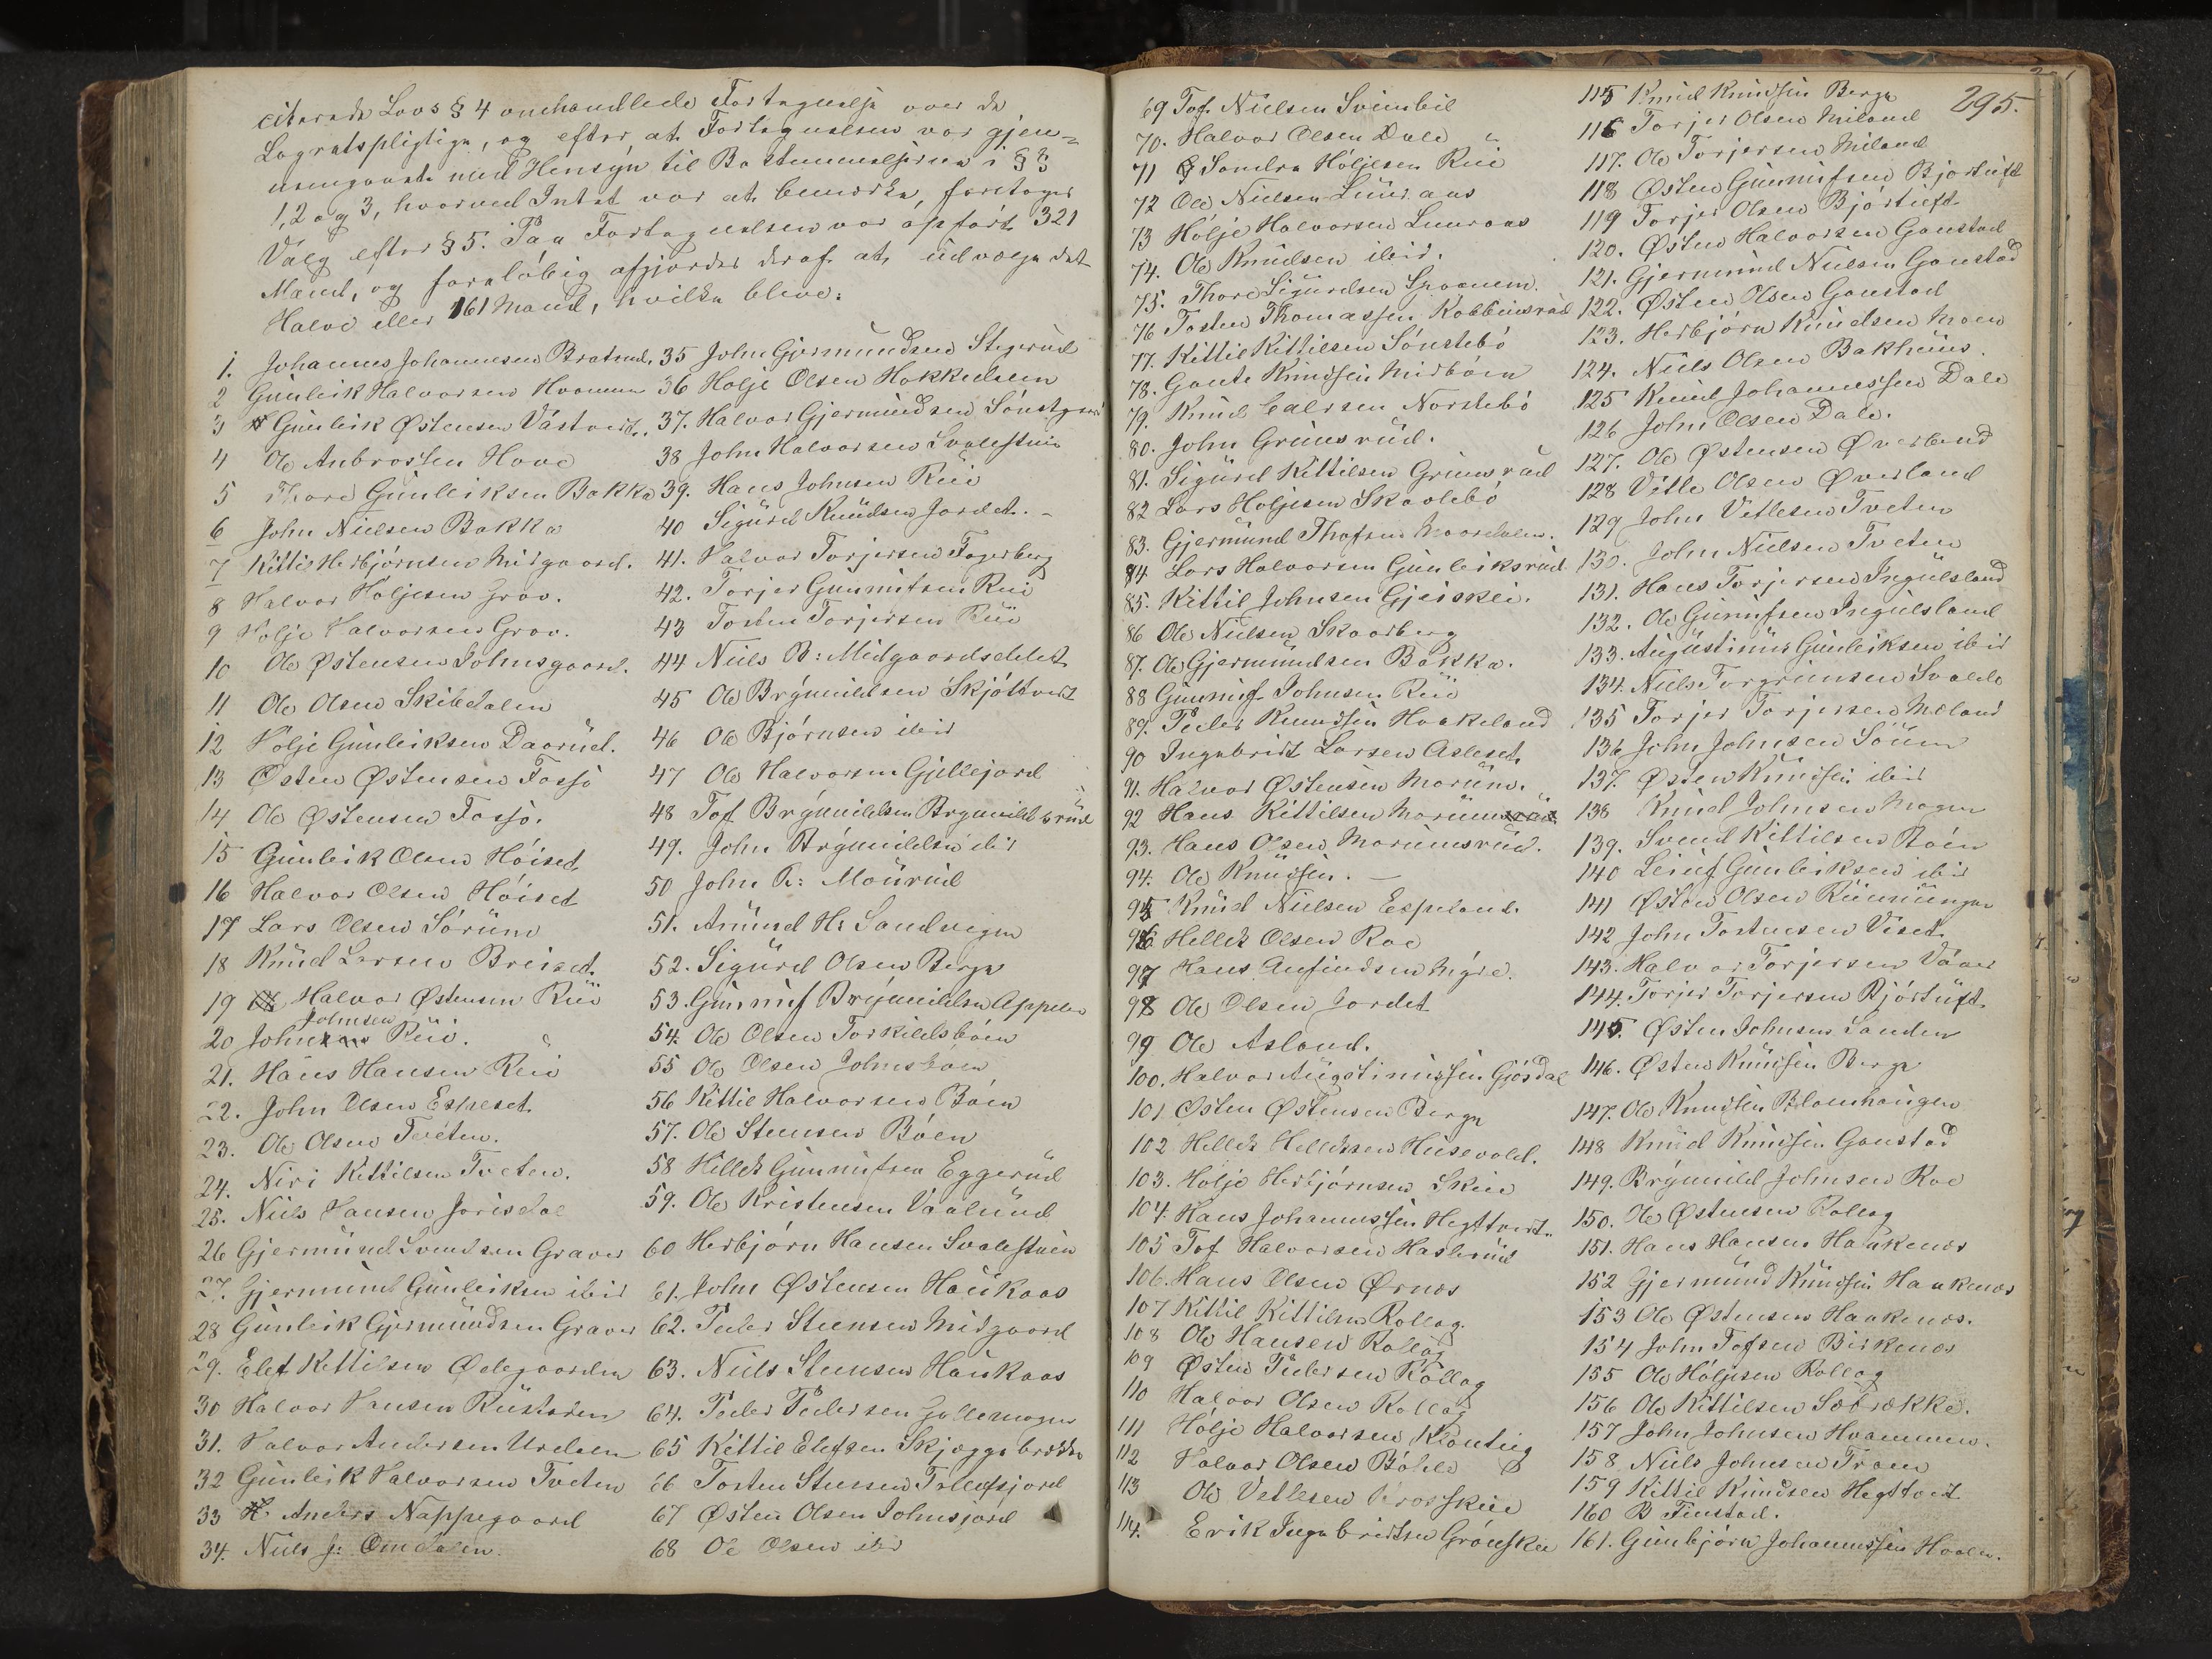 citerede Lovs § 4 omhandlede Fortegnelse over de
Lagretspligtige, og efter, at Fortegnelsen var gjen-
nemgaaet med Hensyn til Bestemmelserne i §§
1, 2 og 3, hvorved Intet var at bemærke, foretoges
Valg efter § 5. Paa Fortegnelsen var opført 321
Mand, og foreløbig afgjordes deraf at udvælge det
Halve eller 161 Mand, hvilke bleve:
1. Johannes Johannesen Bratrud.
2 Gunleik Halvorsen Hvammen
3 Gunleik Østensen Våstveit.
4 Ole Anbrossen Hove
5 Thore Gunleiksen Bakka
6 John Nielsen Bakka
7 Kittil Herbjørnsen Midgaard.
8 Halvor Høljesen Grov.
9 Holje Halvorsen Grov.
10 Ole Østensen Johnsgaard.
11 Ole Olsen Skibdalen
12 Holje Gunleiksen Daarud.
13 Østen Østensen Fossjø
14 Ole Østensen Fosjø.
15 Gunleik Olsen Høiset
16 Halvor Olsen Høiset
17 Lars Olsen Sørum
18 Knud Larsen Breiset.
19 Halvor Østensen Rui
20 John Johnsen Rui.
21. Hans Hansen Rui
22. John Olsen Espeset.
23. Ole Olsen Tveten.
24. Niri Kittilsen Tveten.
25. Niels Hansen Jorisdal
26 Gjermund Svendsen Graver
27. Gjermund Gunleiksen ibid
28 Gunleik Gjermundsen Graver
29. Elef Kittilsen Ødegaarden
30 Halvor Hansen Rustaden
31. Halvor Andersen Urdeen
32 Gunleik Halvorsen Tveten
33 H. Anders Nappegaard
34. Niels J: Omdalen.
35 John Gjermundsen Stegerud
36 Holje Olsen Hakkedalen
37. Halvor Gjermundsen Sønstgaard
38 John Halvorsen Svalestuen
39. Hans Johnsen Rui
40 Sigurd Knudsen Jordet. -
41. Halvor Torjersen Fagerberg
42. Torjer Gunnufsen Rui
43 Tosten Torjersen Rui
44 Niels B: Midgaardseiet
45 Ole Brynuildsen Skjøttveit
46 Ole Bjørnsen ibid
47 Ole Halvorsen Gjellejord
48 Tof Brynuildsen Brynuildsrud
49. John Brynuildsen ibid
50 John K: Mourud
51. Amund H: Sandvegen
52. Sigurd Olsen Berge
53. Gunnuf Brynuildsen Appelen
54. Ole Olsen Torkildsbøen
55 Ole Olsen Johnsbøen
56 Kittil Halvorsen Bøen
57. Ole Steensen Bøen
58 Hellek Gunnufsen Eggerud
59. Ole Kristensen Vaalund
60 Herbjørn Hansen Svalestuen
61. John Østensen Haukaas
62. Peder Steensen Midgaard
63. Niels Steensen Haukaas
64. Peder Pedersen Gullemogen
65 Kittil Elefsen Skjæggebrække
66 Tosten Steensen Trolefsjord
67 Østen Olsen Johnsjord
68 Ole Olsen ibid
295.
69 Tof. Nielsen Sveinbil
70. Halvor Olsen Dale
71 Sondre Høljesen Rui
72 Ole Nielsen Luuraas
73 Hølje Halvorsen Luuraas
74. Ole Knudsen ibid.
75. Thore Sigurdsen Spaanem.
76 Tosten Thomassen Kobbeinsrud
77. Kittil Kittilsen Sønstebø
78. Gaute Knudsen Midbøen
79. Knud Carlsen Nordstebø
80. John Grimsrud.
81. Sigurd Kittilsen Grimsrud
82 Lars Høljesen Skaalebø
83. Gjermund Thofsen Maardalen.
84 Lars Halvorsen Gunleiksrud
85. Kittil Johnsen Gjeiskei.
86 Ole Nielsen Skaarberg
87. Ole Gjermundsen Bakka.
88 Gunnuf Johnsen Rui
89. Peder Knudsen Haakeland
90 Ingebridt Larsen Asleset.
91. Halvor Østensen Morum.
92 Hans Kittilsen Morum
93. Hans Olsen Morumsrud.
94. Ole Knudsen. —
95 Knud Nielsen Espeland.
96 Hellek Olsen Roe
97 Hans Anfindsen Myre.
98 Ole Olsen Jordet
99 Ole Asland.
100. Halvor Augstinussen Gjøsdal
101. Østen Østensen Berge
102 Hellek Helleksen Husevold.
103. Holje Herbjørnsen Skeie
104. Hans Johannessen Hegtveit.
105 Tof Halvorsen Haslerud
106. Hans Olsen Ørnes
107 Kittil Kittilsen Rollag.
108 Ole Hansen Rollag
109 Østen Pedersen Rollag
110 Halvor Olsen Rollag
111 Holje Halvorsen Klønteig
112 Halvor Olsen Bøhle
113 Ole Vetlesen Vrorskeie
114. Erik Ingebridtsen Grønskei
115 Knud Knudsen Berge
116 Torjer Olsen Miland
117. Ole Torjersen Miland
118 Østen Gunnufsen Bjørtuft
119 Torjer Olsen Bjørtuft
120. Østen Halvorsen Gaustad
121. Gjermund Nielsen Gaustad
122. Østen Olsen Gaustad
123. Herbjørn Knudsen Moen
124. Niels Olsen Bakhuus.
125 Knud Johannessen Dale
126 John Olsen Dale.
127. Ole Østensen Øverland
128 Vetle Olsen Øverland
129 John Vetlesen Tveten
130. John Nielsen Tveten
131. Hans Torjersen Ingulsland
132. Ole Gunnufsen Ingulsland
133. Augustinus Gunleiksen ibid
134. Niels Torgrimsen Svadde
135 Torjer Torjersen Mæland
136 John Johnsen Søum
137. Østen Knudsen ibid
138 Knud Johnsen Mogen
139. Svend Kittilsen Bøen
140 Leiuf Gunleiksen ibid
141 Østen Olsen Ruemungen
142 John Tostensen Veset.
143. Halvor Torjersen Våaer
144. Torjer Torjersen Bjørtuft.
145. Østen Johnsen Sanden
146. Østen Knudsen Berge
147. Ole Knudsen Blomhaugen
148 Knud Knudsen Gaustad
149. Brynuild Johnsen Roe
150. Ole Østensen Rollag
151. Hans Hansen Haakenæs
152 Gjermund Knudsen Haakenæs
153 Ole Østensen Haakenæs.
154 John Tofsen Birkenæs
155 Ole Høljesen Rollag
156 Ole Kittilsen Sæbrække.
157 John Johnsen Hvammen.
158 Niels Johnsen Traen
159 Kittil Knudsen Hegtveit
160 B Finstad.
161. Gunbjørn Johannessen Haalen.